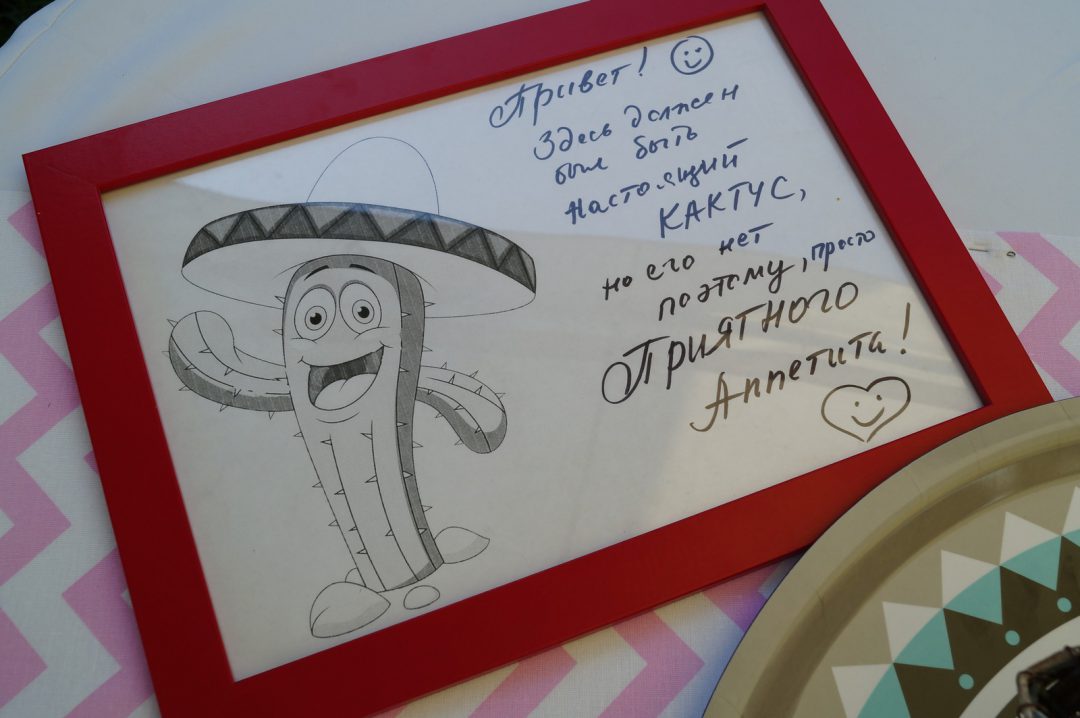 Привет!
Здесь должен
был быть
настоящий
КАКТУС,
но его нет
поэтому, просто
ПРИЯТНОГО
Аппетита!